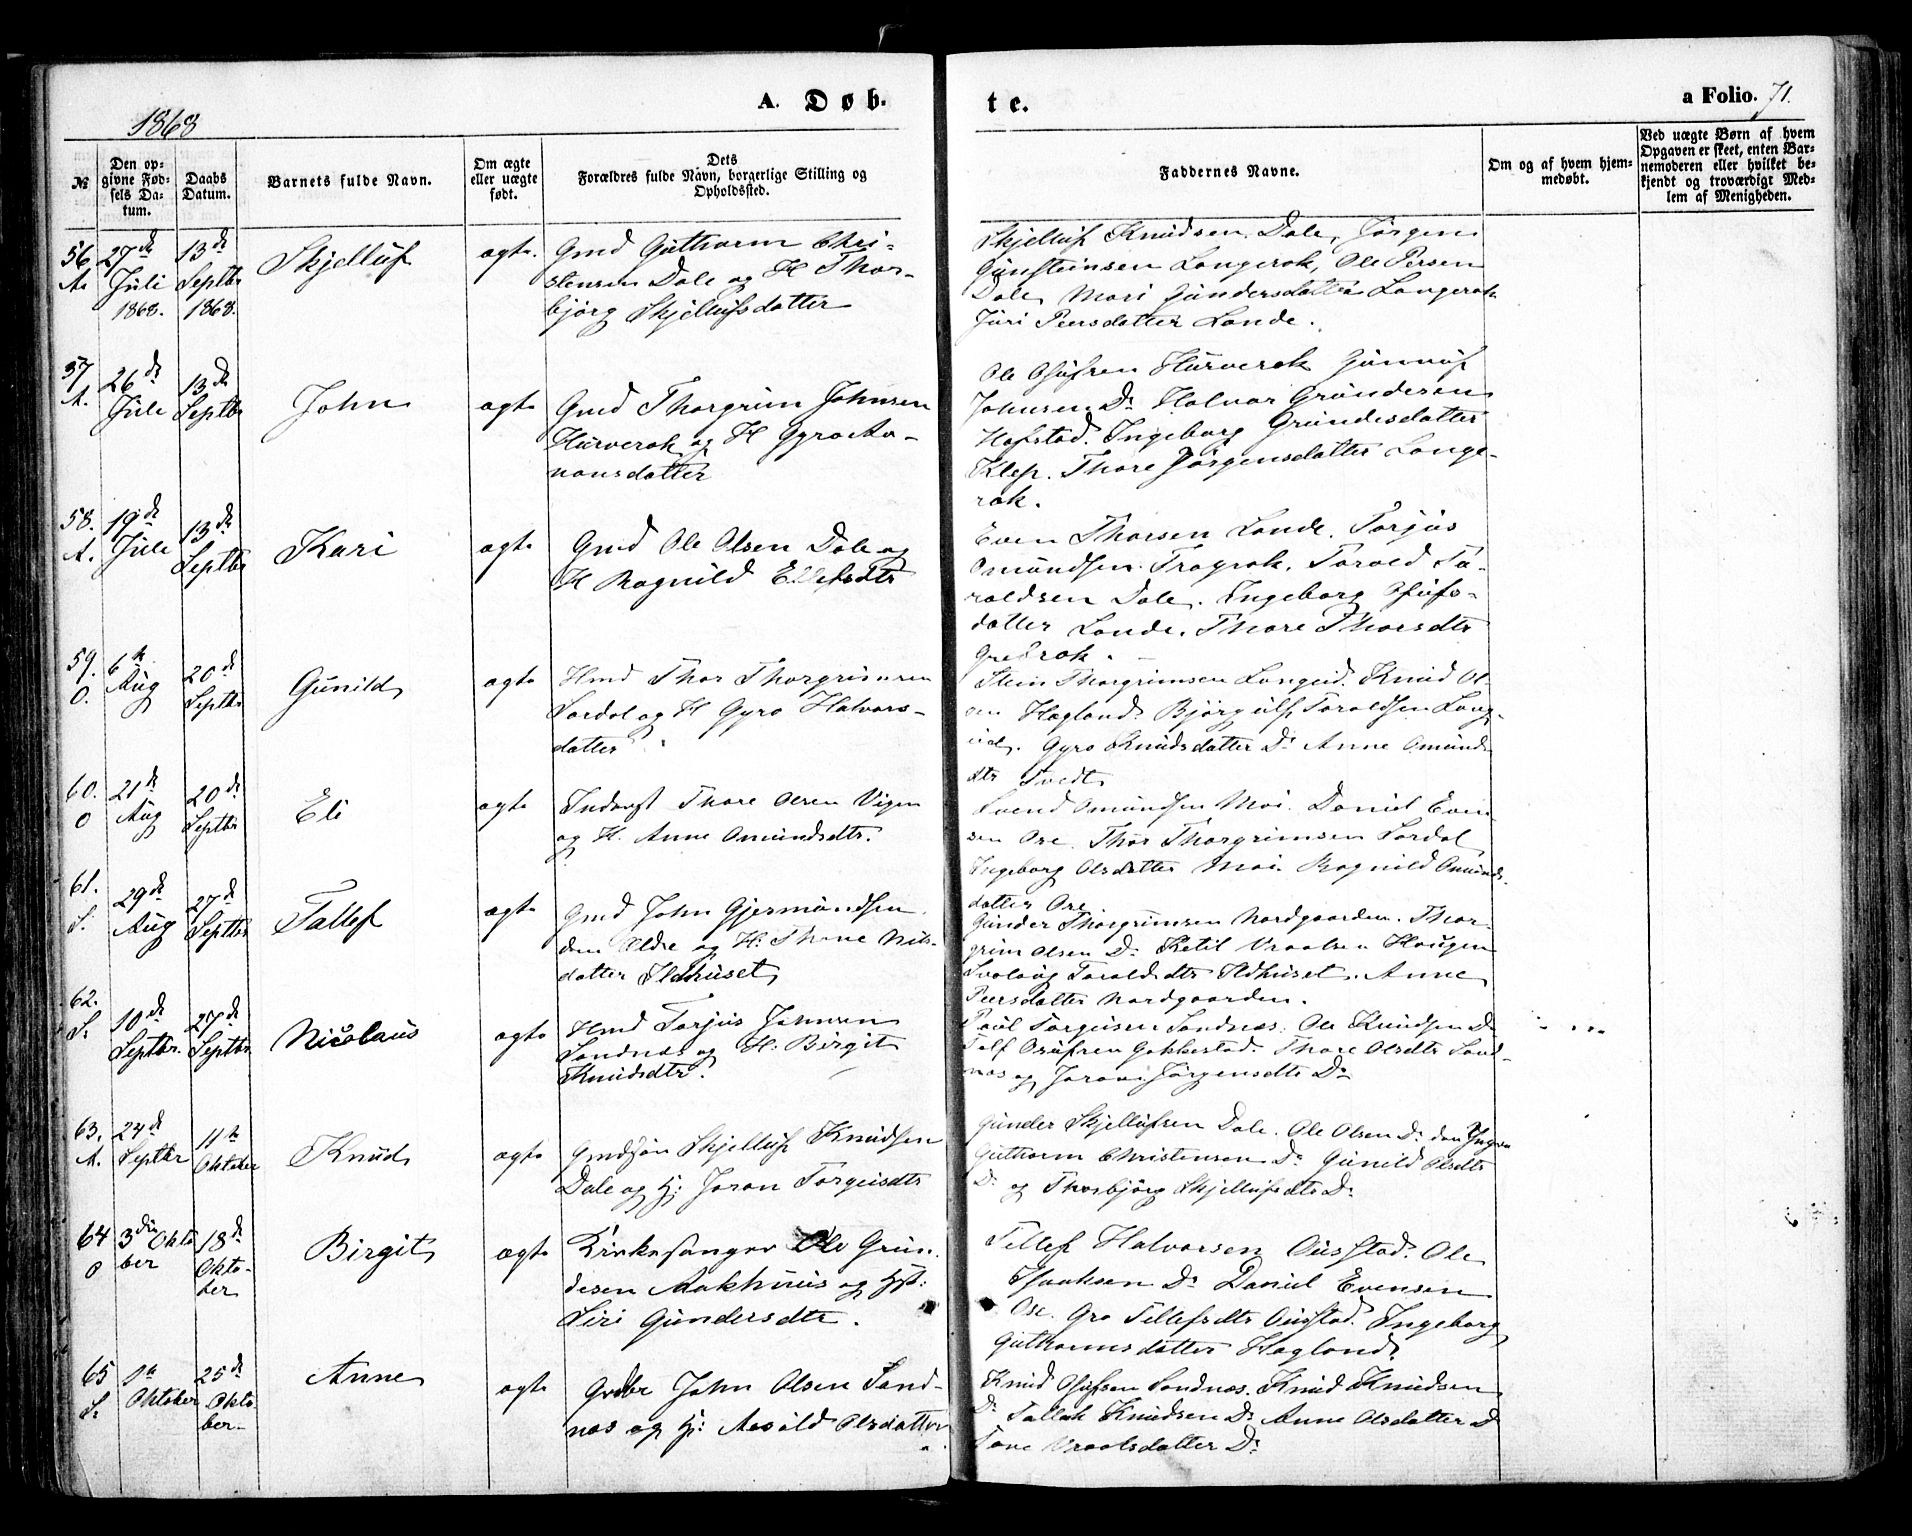 1868
A. Døb-
te.
a Folio. 71.
№
Den op-
givne Fød-
sels Da-
tum.
Daabs
Datum.
Barnets fulde Navn.
Om ægte
eller uægte
født.
Dets
Forældres fulde Navn, borgerlige Stilling og
Opholdssted.
Faddernes Navne.
Om og af hvem hjem-
medøbt.
Ved uægte Børn af hvem
Opgaven er skeet, enten Bar-
nemoderen eller hvilket be-
kjendt og troværdigt Med-
lem af Menigheden.
56
A.
27de
Juli
1868.
13de
Septbr
1868.
Skjelluf
ægte.
Gmd Guthorm Chri-
stensen Dale og H Thor-
bjørg Skjellufsdatter
Skjelluf Knudsen Dale, Jörgen
Gunsteinsen Langerak, Ole Persen
Dale, Mari Gundersdatter Langerak
Juri Peersdatter Lande.
57
A.
26de
Juli
13de
Septbr
John
ægte
Gmd Thorgrim Johnsen
Harverak og H Gyro Aa-
nonsdatter
Ole Osufsen Harverak Gunnuf
Johnsen Do Halvor Grundesen
Hafstad. Ingeborg Grundesdatter
Klep. Thore Jörgensdatter Lange-
rak.
58.
A.
19de
Juli
13de
Septbr
Kari
ægte
Gmd Ole Olsen Dale og
H Ragnild Ellefsdtr
Even Thorsen Lande. Torjus
Omundsen Fragrok. Torald To-
raldsen Dale. Ingeborg Osufs-
datter Lande. Thore Thorsdtr
59.
O.
6te
Aug
20de
Septbr
Gunild
ægte
Hmd Thor Thorgrimsen
Sordal og H Gyro Halvors-
datter
Stein Thorgrimsen Langeid. Knud Ol-
sen Hagland. Bjørgulf Taraldsen Lang-
eid. Gyro Knudsdatter Do Anne Omunds
dtr Tvedt
60.
O
21de
Aug
20de
Septbr
Eli
ægte
Inderst Thore Olsen Vigen
og H. Anne Omundsdtr.
Svend Omundsen Moi. Daniel Even
sen Ose. Thor Thorgrimsen Sordal
Ingeborg Olsdatter Moi. Ragnild Omunds-
datter Ose
61.
S.
29de
Aug
27de
Septbr
Tallef
ægte
Gmd John Gjermundsen
den Ældre og H: Thone Nils-
datter Ildhuset
Gunder Thorgrimsen Nordgaarden. Thor-
grim Olsen Do Ketil Vraalsen Haugen
Svalaug Taraldsdtr Ildhuset. Anne
Peersdatter Nordgaarden.
62.
S.
10de
Septbr.
27de
Septbr
Nicolaus
ægte
Hmd Torjus Johnsen
Sandnæs og H: Birgit
Knudsdtr.
Paul Torgeisen Sandnæs. Ole Knudsen Do
Tolf Osufsen Gakkestad. Thore Olsdtr Sand-
næs og Joran Jörgensdtr Do
63.
A.
24de
Septbr
11te
Oktober
Knud
ægte
Gmdsön Skjelluf Knudsen
Dale og H: Joran Torgeisdtr
Gunder Skjellufsen Dale. Ole Olsen Do den Yngre
Guthorm Christensen Do Gunild Olsdtr
Do og Thorbjörg Skjellufsdtr Do
64
O
3die Okto
ber
18de
Okto-
ber
Birgit
ægte
Kirkesanger Ole Grun-
desen Aakhuus og Hst:
Siri Gundersdtr.
Tellef Halvorsen Ousstad. Ole
Isaaksen Do Daniel Evensen
Ose. Gro Tellefsdtr Ousstad. Ingeborg
Guthormsdatter Hagland.
65
S.
1te
Oktober
25de
Okto
ber
Anne
ægte
Gmbr John Olsen Sand-
næs og H: Aasold Olsdatter
Knud Osufsen Sandnæs. Knud Knudsen
Do Tallak Knudsen Do Anne Olsdatter Do
Tone Vraalsdatter Do